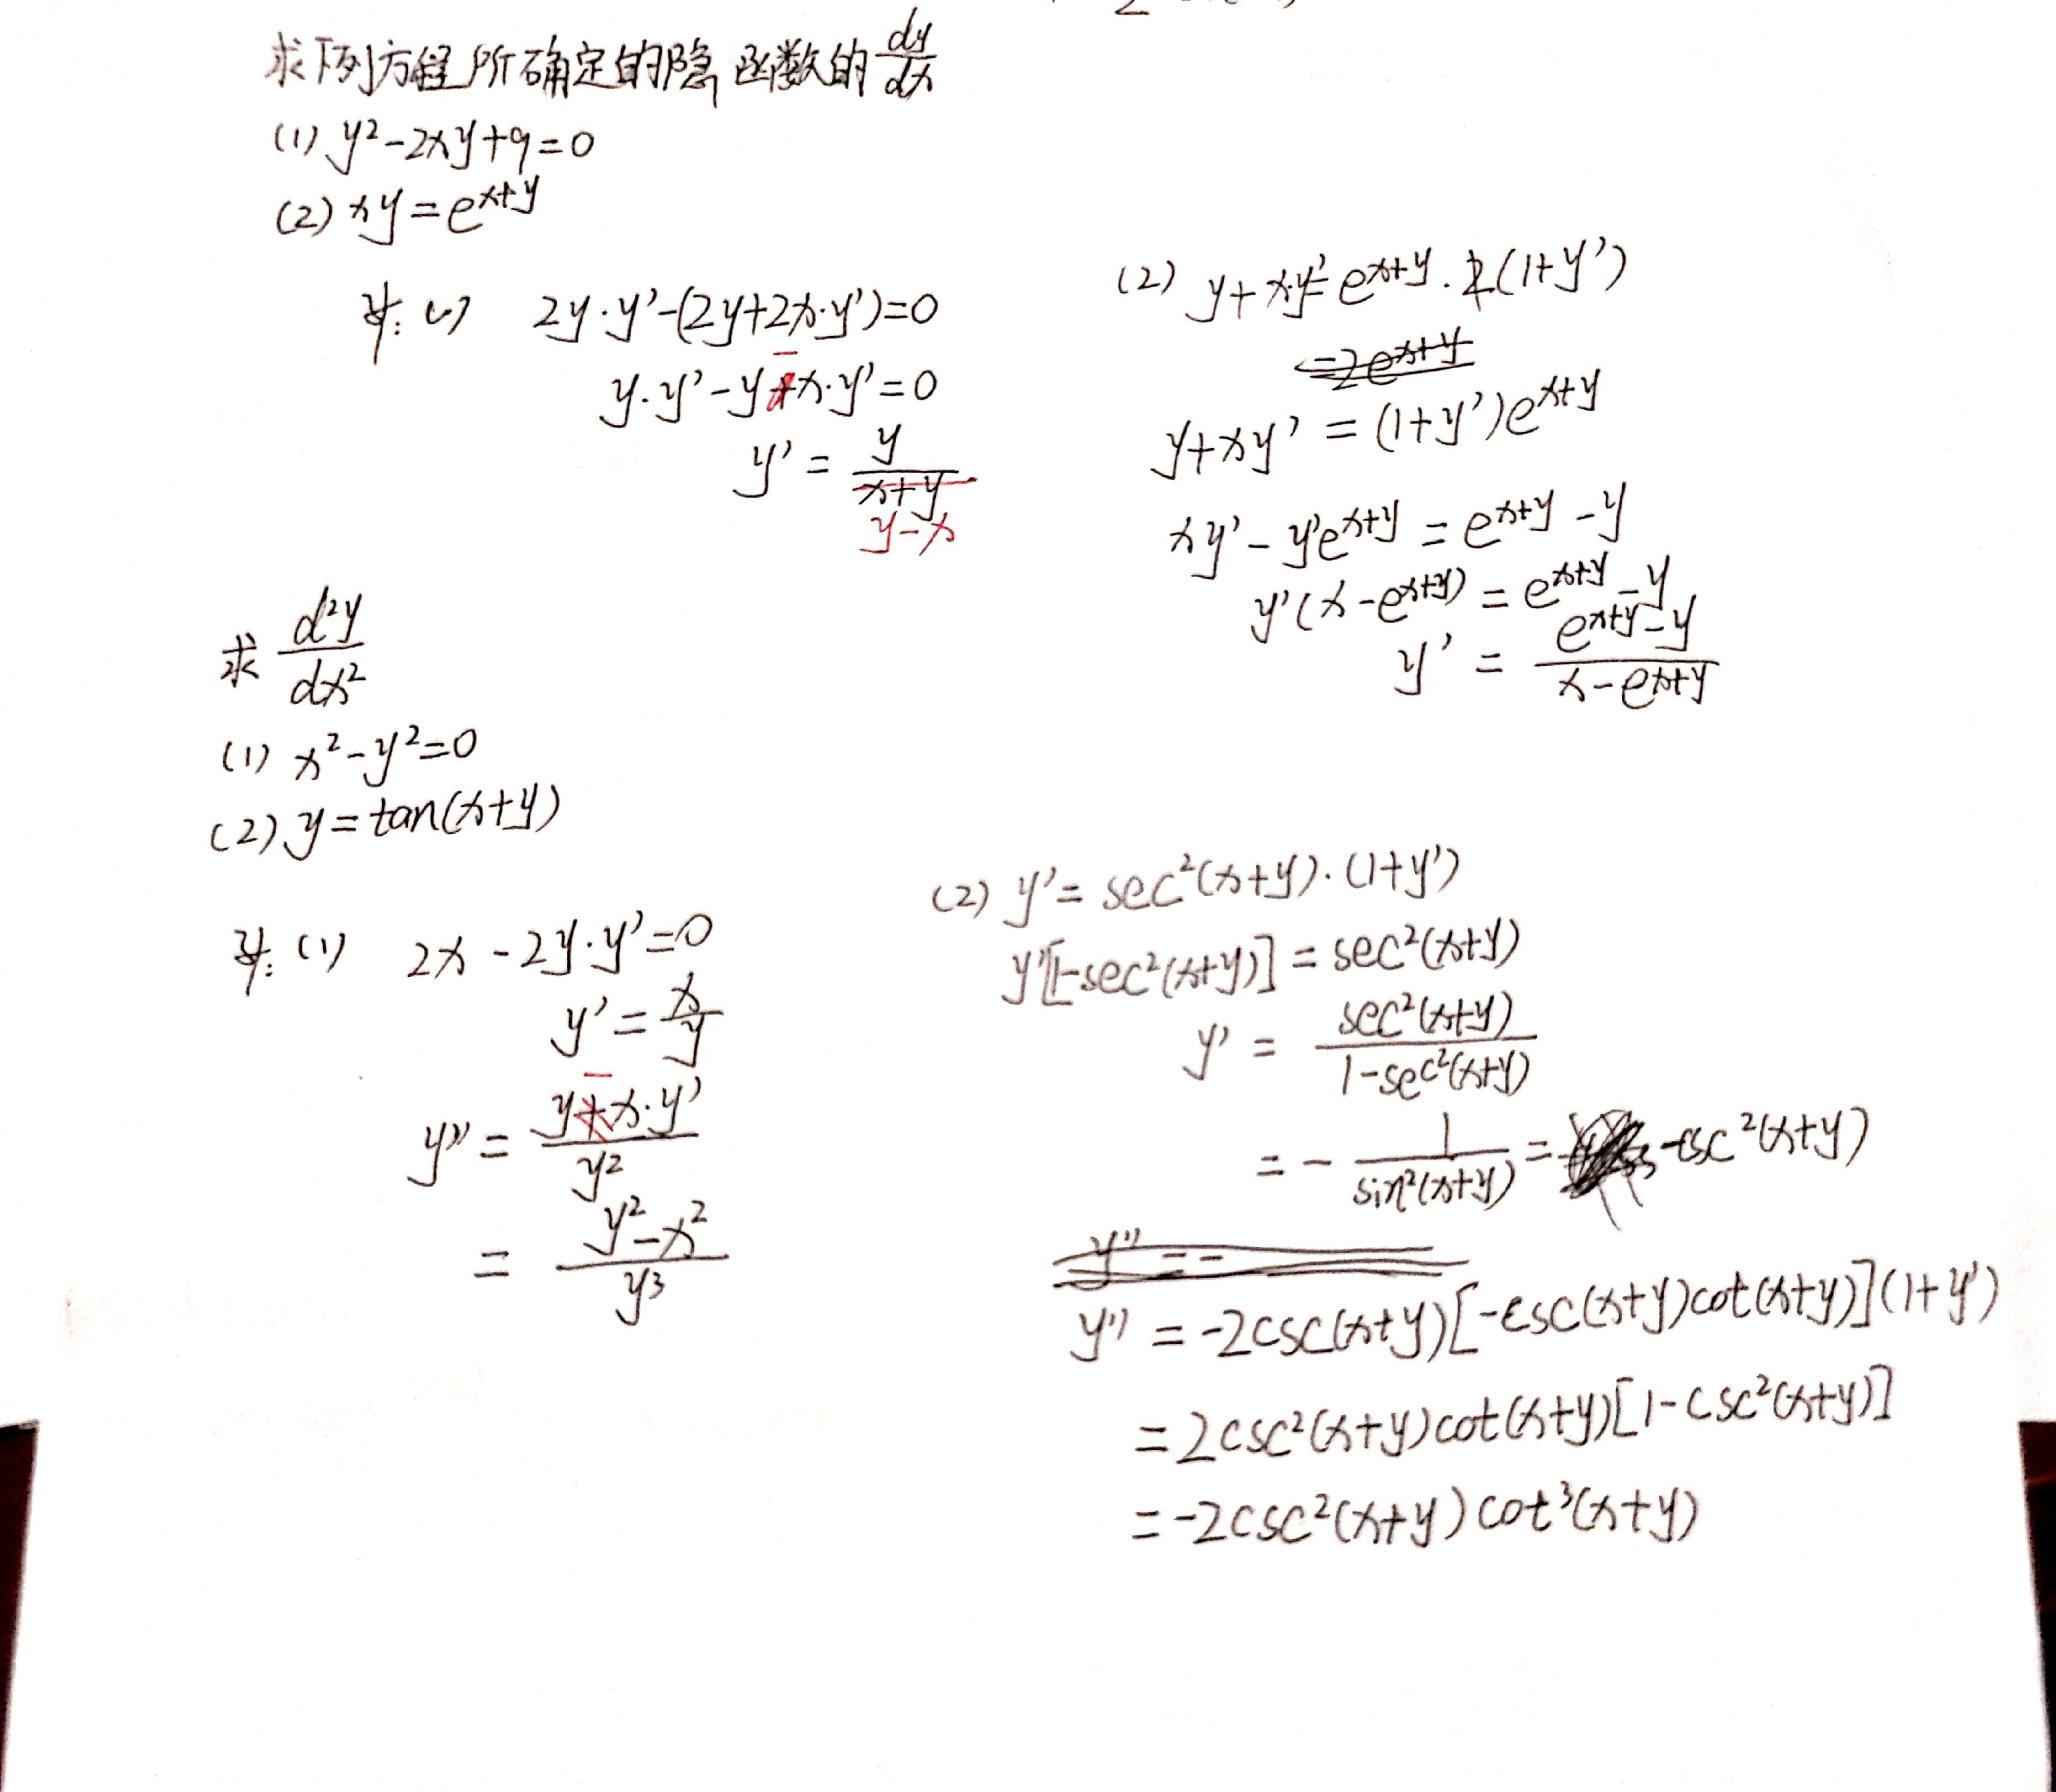 求下列方程所确定的隐函数的 dy/dx
(1) y²-2xy+9=0
(2) xy=e^(x+y)
(1) 2y·y'-(2y+2x·y')=0
y·y'-y-x·y'=0
y' = y/(x+y)
y-x
(2) y+xy'=e^(x+y)·(1+y')
=2e^(x+y)
y+xy' = (1+y')e^(x+y)
xy'-y'e^(x+y) = e^(x+y)-y
y'(x-e^(x+y)) = e^(x+y)-y
y' = (e^(x+y)-y)/(x-e^(x+y))
求 d²y/dx²
(1) x²-y²=0
(2) y=tan(x+y)
(1) 2x-2y·y'=0
y'=x/y
y''=(y-x·y')/y²
= (y²-x²)/y³
(2) y'=sec²(x+y)·(1+y')
y'[1-sec²(x+y)]=sec²(x+y)
y' = sec²(x+y)/(1-sec²(x+y))
=-1/sin²(x+y)=-csc²(x+y)
y''=-
y''=-2csc(x+y)[-csc(x+y)cot(x+y)](1+y')
=2csc²(x+y)cot(x+y)[1-csc²(x+y)]
=-2csc²(x+y)cot³(x+y)